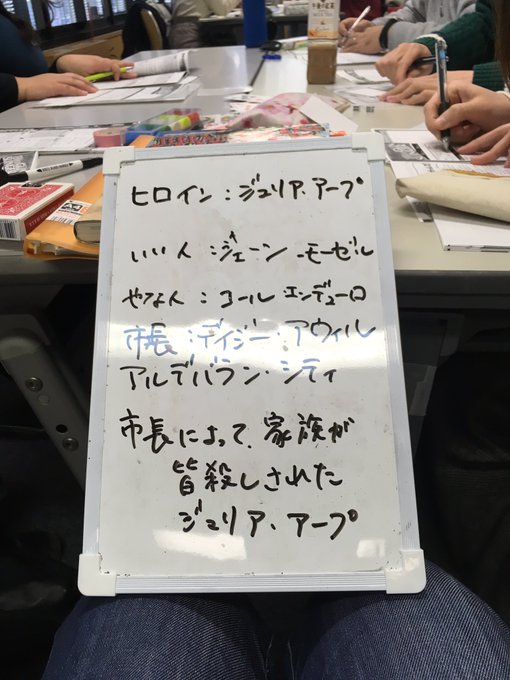 ヒロイン:ジュリア・アープ
いい人:ジェーン・モーゼル
やな人:コール エンデューロ
市長:デイジー・アウィル
アルデバラン・シティ
市長によって、家族が
皆殺しされた
ジュリア・アープ